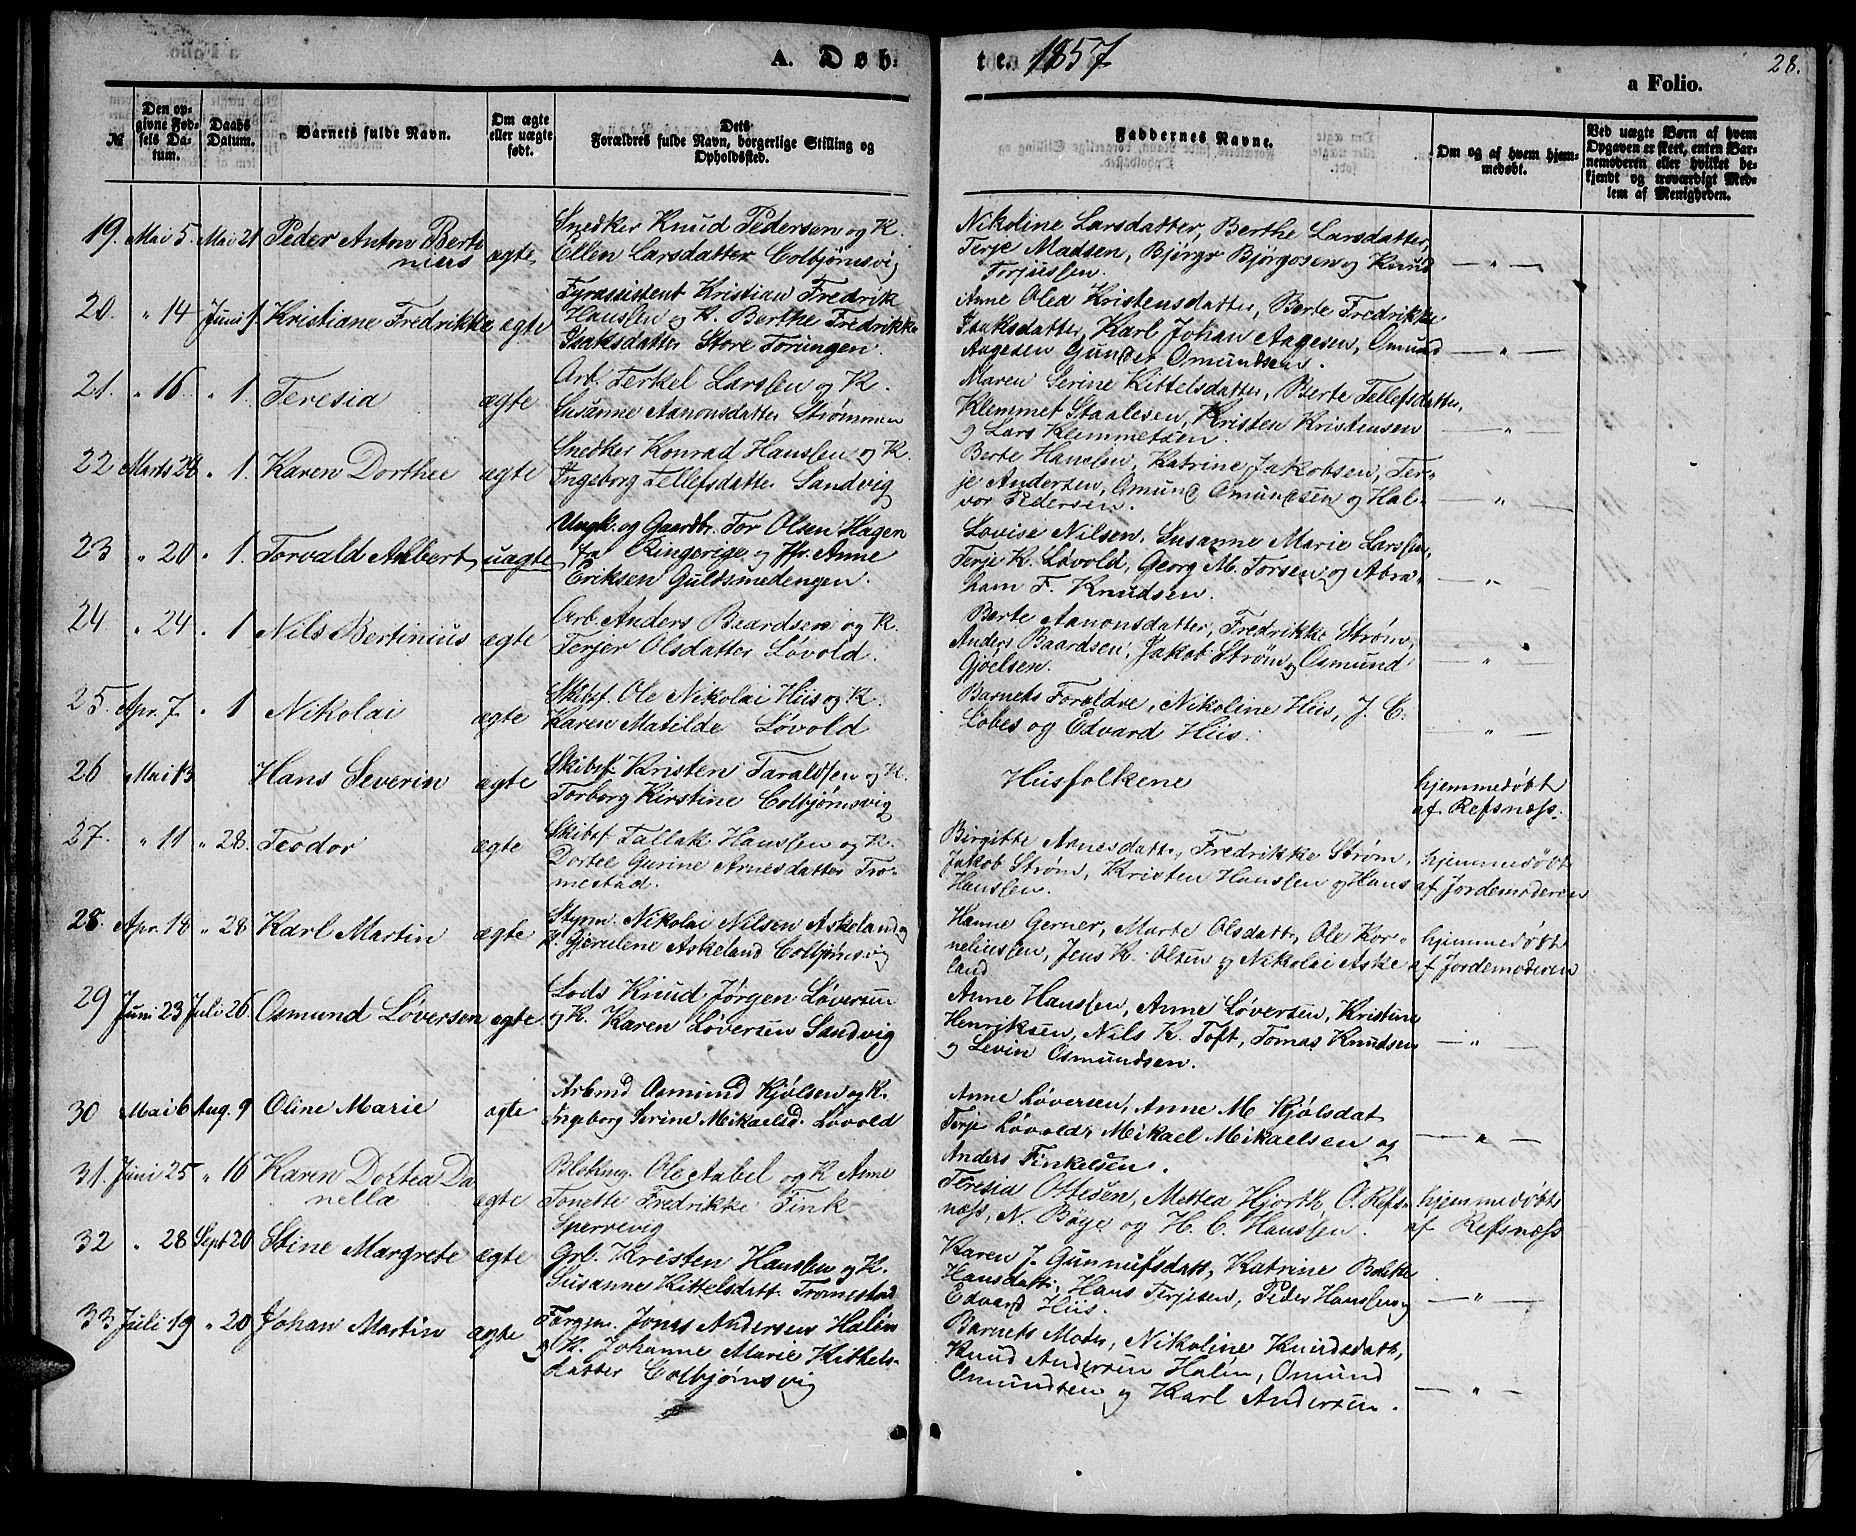 A. Døb- te. 1857
28.
a Folio.
№
Den op-
givne Fød-
sels Da-
tum.
Daabs
Datum.
Barnets fulde Navn.
Om ægte
eller uægte
født.
Dets
Forældres fulde Navn, borgerlige Stilling og
Opholdssted.
Faddernes Navne.
Om og af hvem hjem-
medøbt.
Ved uægte Børn af hvem
Opgaven er skeet, enten Bar-
nemoderen eller hvilket be-
kjendt og troværdigt Med-
lem af Menigheden.
19. Mai 5. Mai 21 Peder Anton Berti
nius ægte
Snedker Knud Pedersen og K.
Ellen Larsdatter Colbjørnsvig
Nikoline Larsdatter, Berthe Larsdatter,
Terje Madsen, Bjørgo Bjørgosen og Knud
Terjussen. — " —
20. " 14 Juni 1. Kristiane Fredrikke ægte
Fyrassistent Kristian Fredrik
Hanssen og K. Berthe Fredrikke
Isaksdatter Store Torungen.
Anne Olea Kristensdatter, Berte Fredrikke
Isaksdatter, Karl Johan Aagesen, Omund
Aagesen Gunder Omundsen. — " —
21. " 16 " 1. Teresia ægte
Arb. Terkel Larssen og K.
Susanne Aanonsdatter Strømmen
Maren Serine Kittelsdatter, Berte Tellefsdatter,
Klemmet Staalesen, Kristen Kristensen
og Lars Klemmetsen. — " —
22 Marts 28 " 1. Karen Dorthee ægte
Snedker Konrad Hanssen og K.
Ingeborg Tellefsdatter Sandvig
Berte Hanssen, Katrine Jakobsen, Ter-
je Andersen, Omund Omundsen og Hal-
vor Pedersen. — " —
23 " 20 " 1. Torvald Albert uægte
Ungk. og Gaardbr. Tor Olsen Hagen
fra Ringerige og Pfr. Anne
Eriksen Guldsmedengen.
Lovise Nilsen, Susanne Marie Larssen,
Terje K. Løvold, Georg M. Torsen og Abra-
ham F. Knudsen. — " —
24 " 24 " 1 Nils Bertinius ægte
Arb. Anders Baardsen og K.
Terjer Olsdatter Løvold.
Berte Aanonsdatter, Fredrikke Strøm,
Anders Baardsen, Jakob Strøm og Osmund
Gjøelsen. — " —
25. Apr. 7. " 1 Nikolai ægte
Skibsf. Ole Nikolai Hiis og K.
Karen Matilde Løvold
Barnets Forældre, Nikoline Hiis, J. C.
Løbes og Edvard Hiis. — " —
26 Mai 13 Hans Severin ægte
Skibsf. Kristen Taraldsen og K.
Torborg Kirstine Colbjørnsvig
Husfolkene
hjemmedøbt
af Refsnæss.
27. " 11 " 28. Teodor ægte
Skibsf. Tallak Hanssen og K.
Dortee Gurine Arnesdatter Tro-
mestad.
Birgitte Arnesdatter, Fredrikke Strøm,
Jakob Strøm, Kristen Hanssen og Hans
Hanssen.
hjemmedøbt
af Jordemoderen
28. Apr. 18 " 28 Karl Martin ægte
Styrm. Nikolai Nilsen Askeland og
K. Gjerulene Askeland Colbjørnsvig
Hanne Gerner, Marte Olsdatter, Ole Kor-
neliussen, Jens K. Olsen og Nikolai Aske
land
hjemmedøbt
af Jordemoderen
29 Juni 23 Juli 26 Osmund Løversen ægte
Lods Knud Jørgen Løversen
og K. Karen Løversen Sandvig
Anne Hanssen, Anne Løversen, Kristine
Henriksen, Nils K. Toft, Tomas Knudsen
og Levin Osmundsen. — " —
30 Mai 6 Aug. 9 Oline Marie ægte
Arbmd Osmund Kjølsen og K.
Ingeborg Serine Mikaelsd. Løvold
Anne Løversen, Anne M. Kjølsdat
Terje Løvold, Mikael Mikaelsen og
Anders Finkelsen. — " —
31. Juni 25 " 16 Karen Dortea Da
nella ægte
Ole Aabel og K Anne
Tonette Fredrikke Fink
Sperrevig
Teresia Ottesen, Mettea Hjorth, O. Refs-
næss, N. Bøye og H. C. Hanssen.
hjemmedøbt
af Refsnæss
32 " 28 Sept 20 Stine Margrete ægte
Grb. Kristen Hanssen og K.
Susanne Kittelsdatt. Tromestad
Karen J. Gunnufsdatt, Katrine Bolette
Hansdatter, Hans Terjesen, Peder Hanssen og
Edvard Hiis. — " —
33 Juli 19 " 20 Johan Martin ægte
Færgm. Jonas Andersen Halén
og K. Johanne Marie Kittels-
datter Colbjørnsvig
Barnets Moder, Nikoline Knudsdatter,
Knud Andersen Halén, Omund
Omundsen og Karl Andersen. — " —